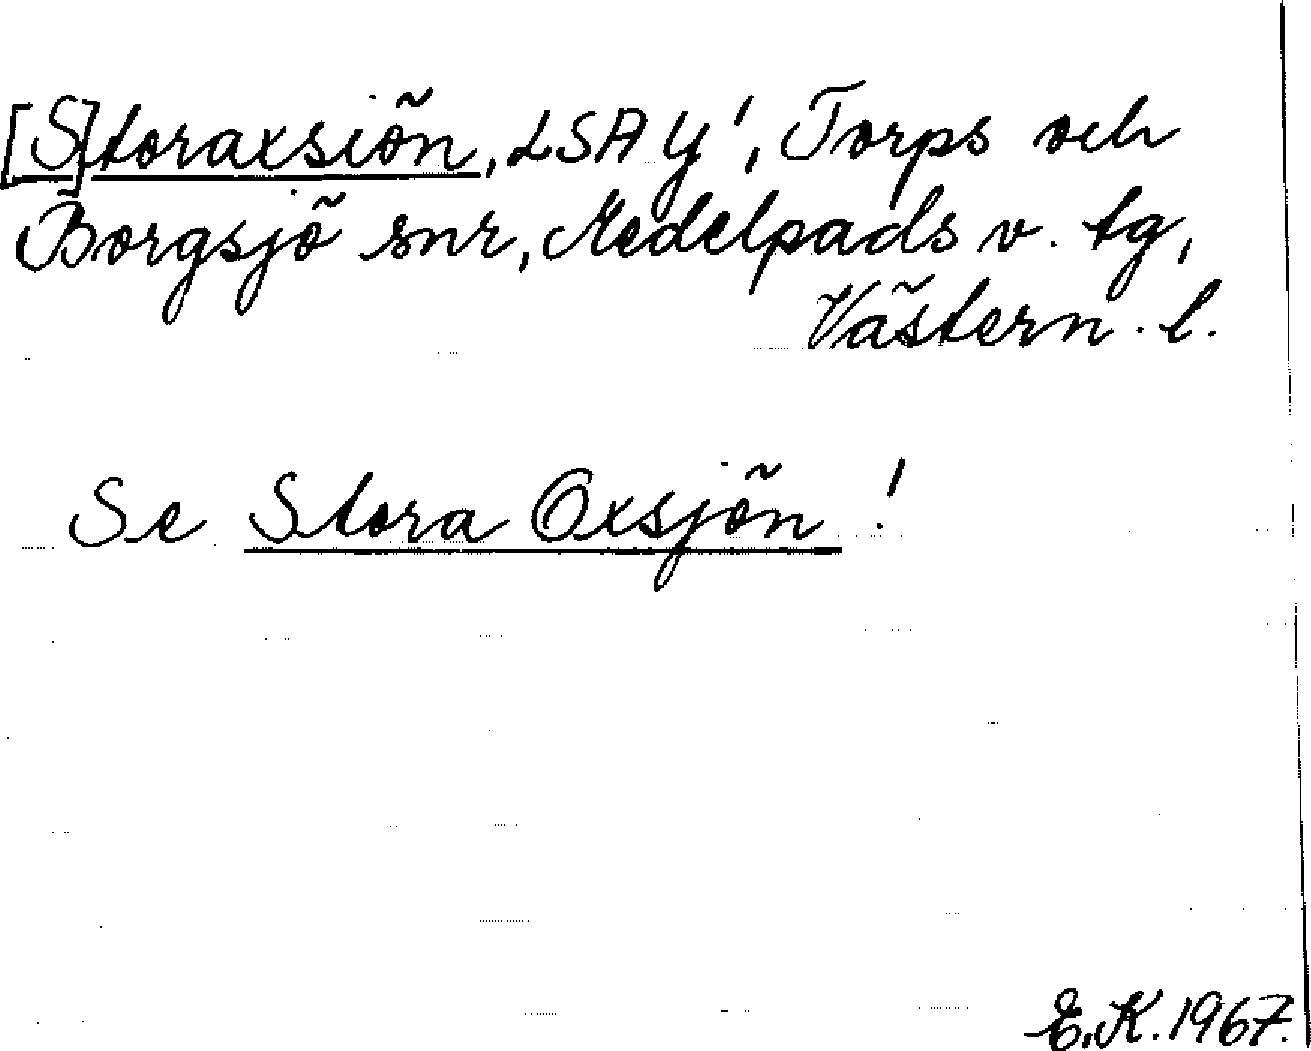 [S]toraxsiön, LSA Y', Torps och
Borgsjö snr, Medelpads v. tg,
Västern. l.
Se Stora Oxsjön!
E.K. 1967.